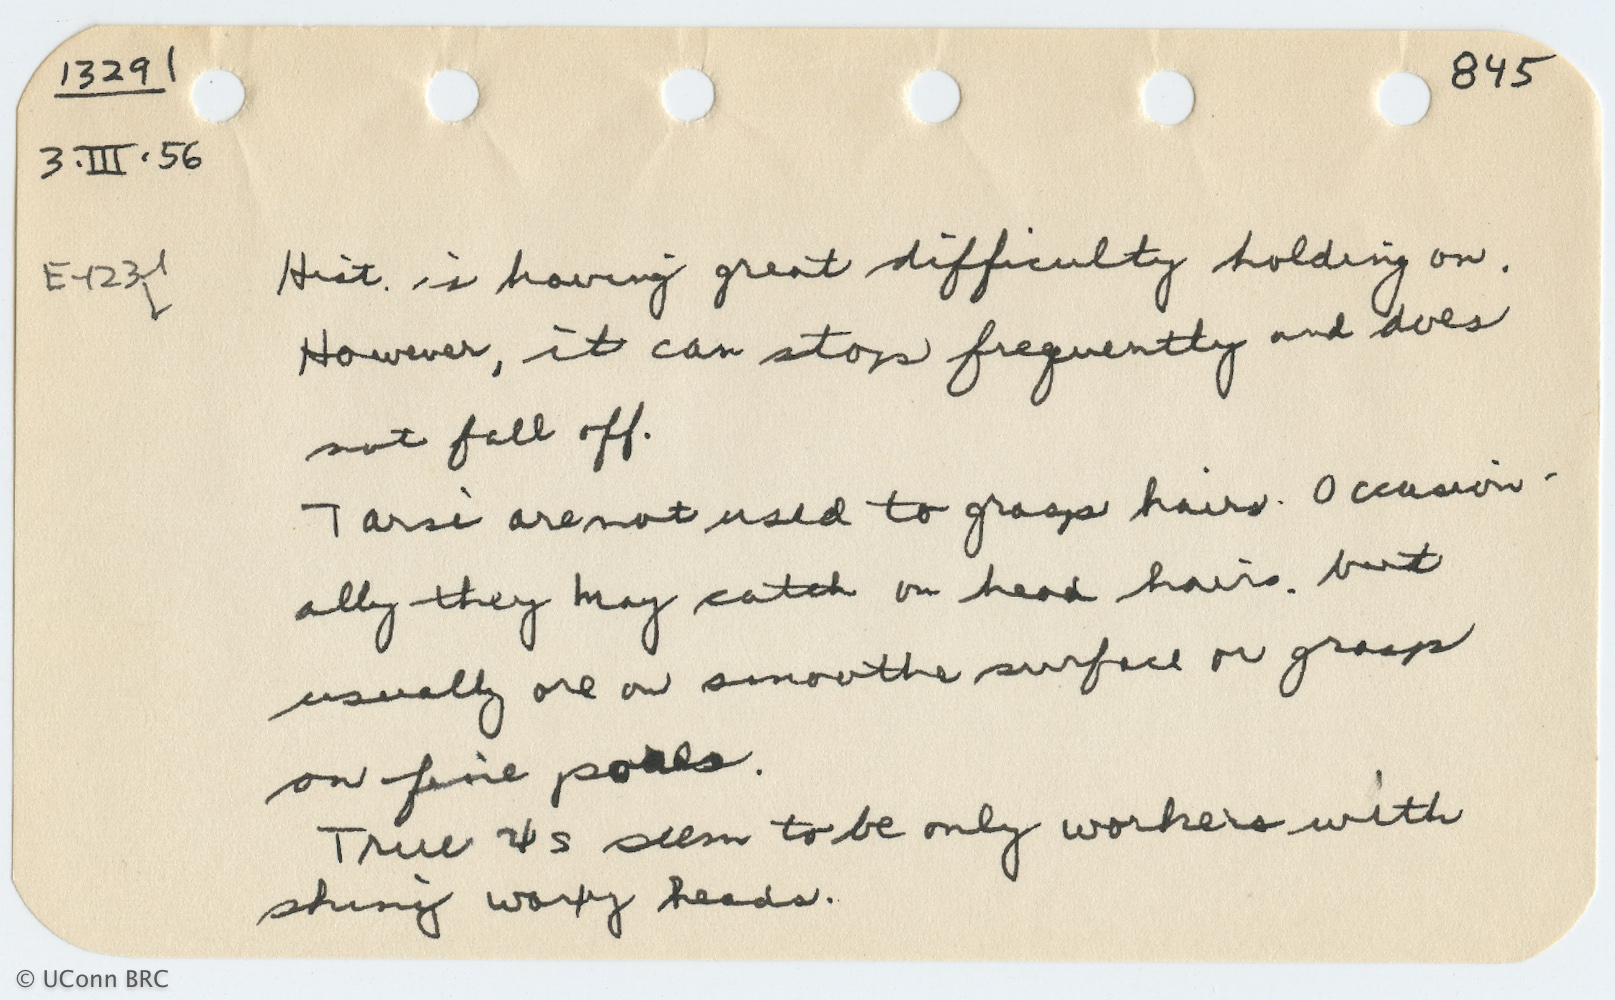 13291
845
3.III.56
E-123
Hist. is having great difficulty holding on.
However, it can stop frequently and does
not fall off.
Tarsi are not used to grasp hairs. Occasion-
ally they may catch on head hairs. but
usually are on smoothe surface or grasp
on fine
True 4s seem to be only workers with
shiny waxy heads.
© UConn BRC